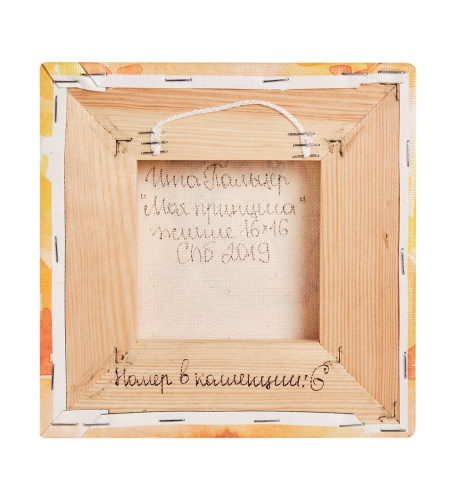 Инна Пальцер
"Моя принцесса"
жикле 16*16
СПб 2019
Номер в коллекции: 6